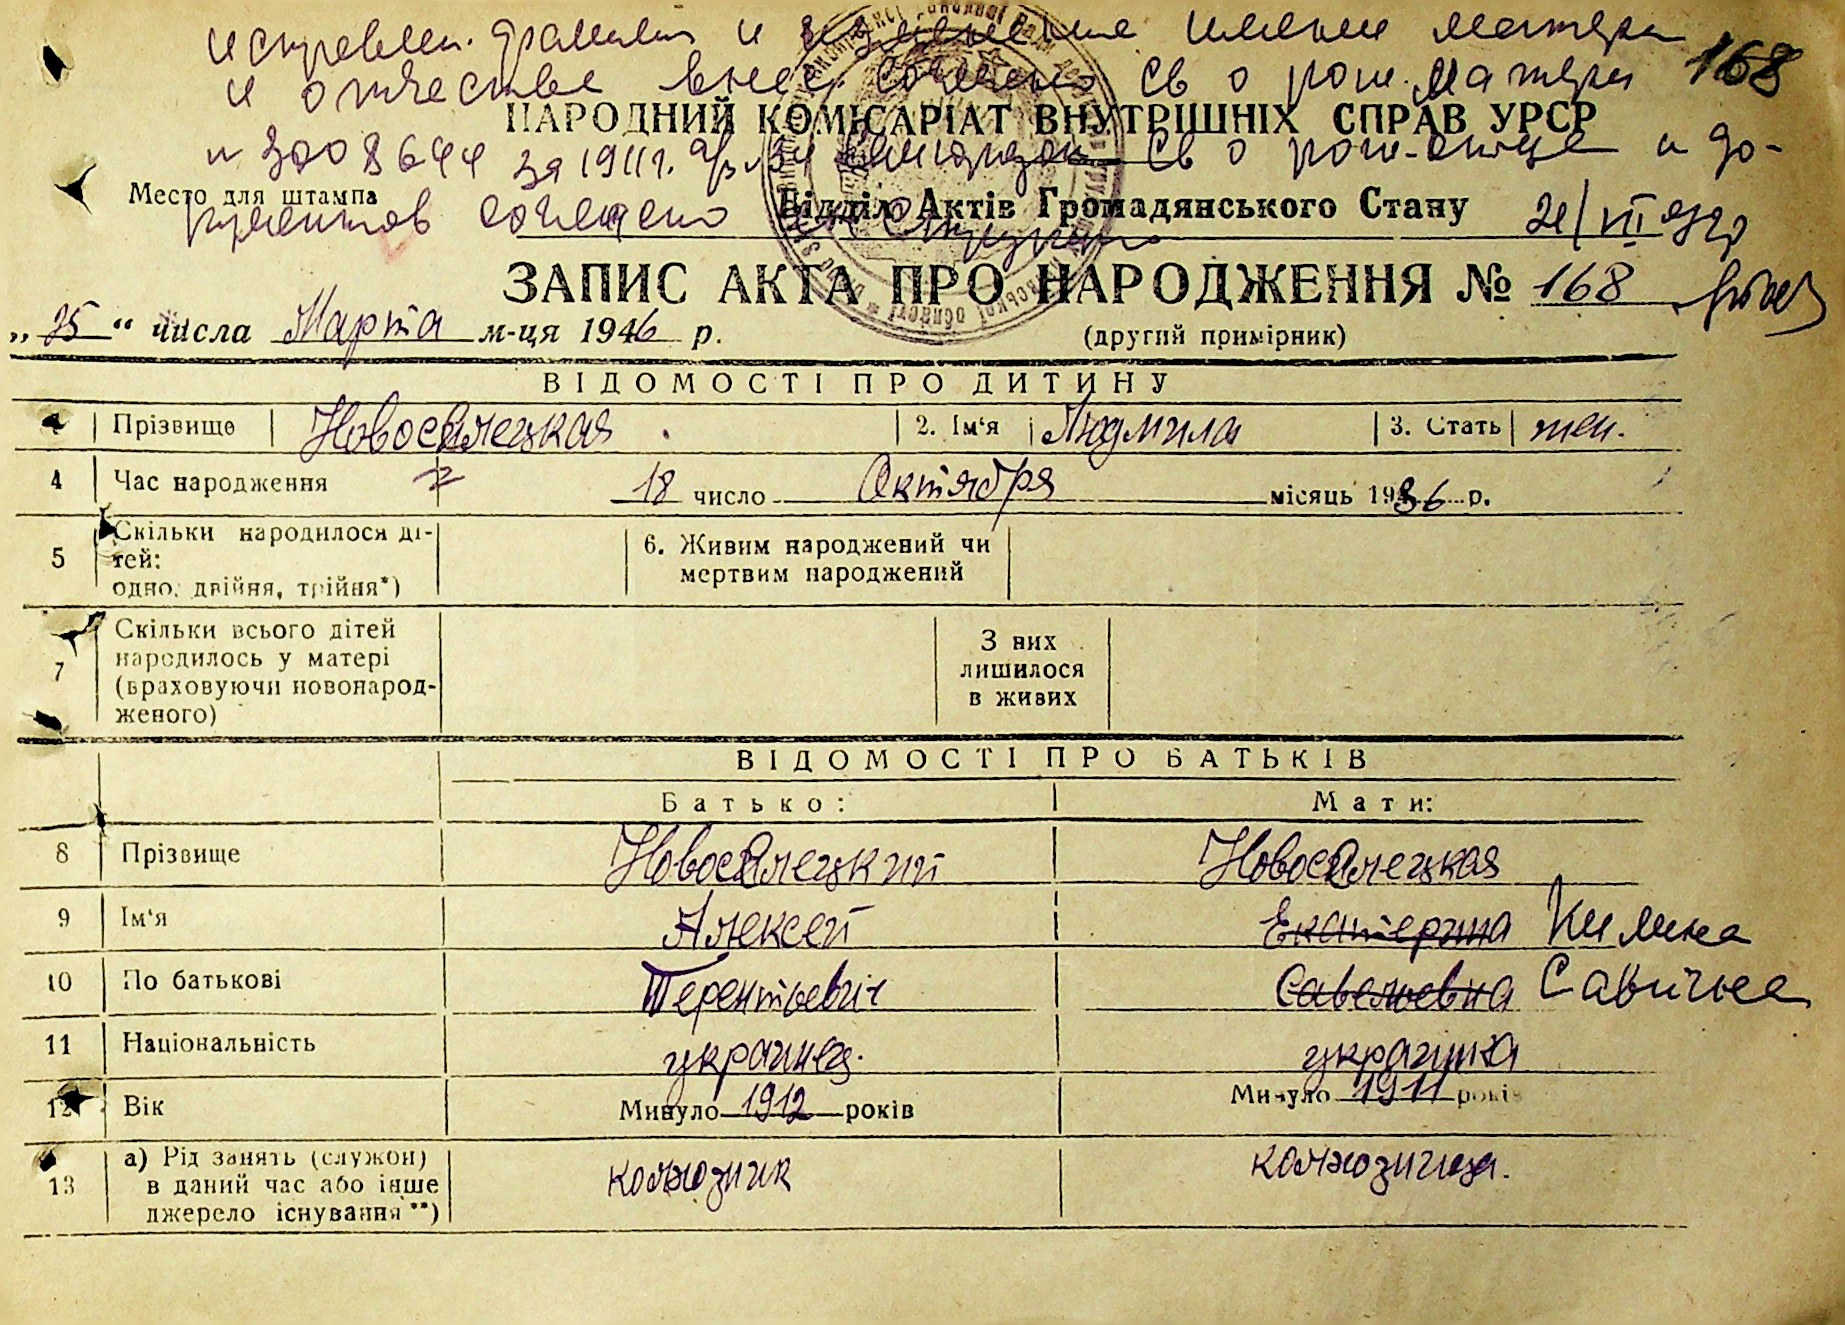 исправлен. фамилия и изменение имени матери
и отчества внес. согласно св о рож. матери 168
НАРОДНИЙ КОМІСАРІАТ ВНУТРІШНІХ СПРАВ УРСР
за 1911г. св о рож. и до-
Место для штампа Відділ Актів Громадянського Стану
кументов согласно 21/VII
ЗАПИС АКТА ПРО НАРОДЖЕННЯ № 168
„25“ числа Марта м-ця 1946 р. (другий примірник)
ВІДОМОСТІ ПРО ДИТИНУ
Прізвище Новоселецкая 2. Ім‘я Людмила 3. Стать жен.
4 Час народження 18 число Октября місяць 1936 р.
5 Скільки народилося ді-
тей:
одно, двійня, трійня*)
6. Живим народжений чи
мертвим народжений
7 Скільки всього дітей
народилось у матері
(враховуючи новонарод-
женого)
З них
лишилося
в живих
ВІДОМОСТІ ПРО БАТЬКІВ
Батько: Мати:
8 Прізвище Новоселецкий Новоселецкая
9 Ім‘я Алексей Екатерина Килина
10 По батькові Терентьевич Савельевна Савична
11 Національність украинец. украинка
12 Вік Минуло 1912 років Минуло 1911 років
13 а) Рід занять (служби)
в даний час або інше
джерело існування**)
колхозник колхозница.